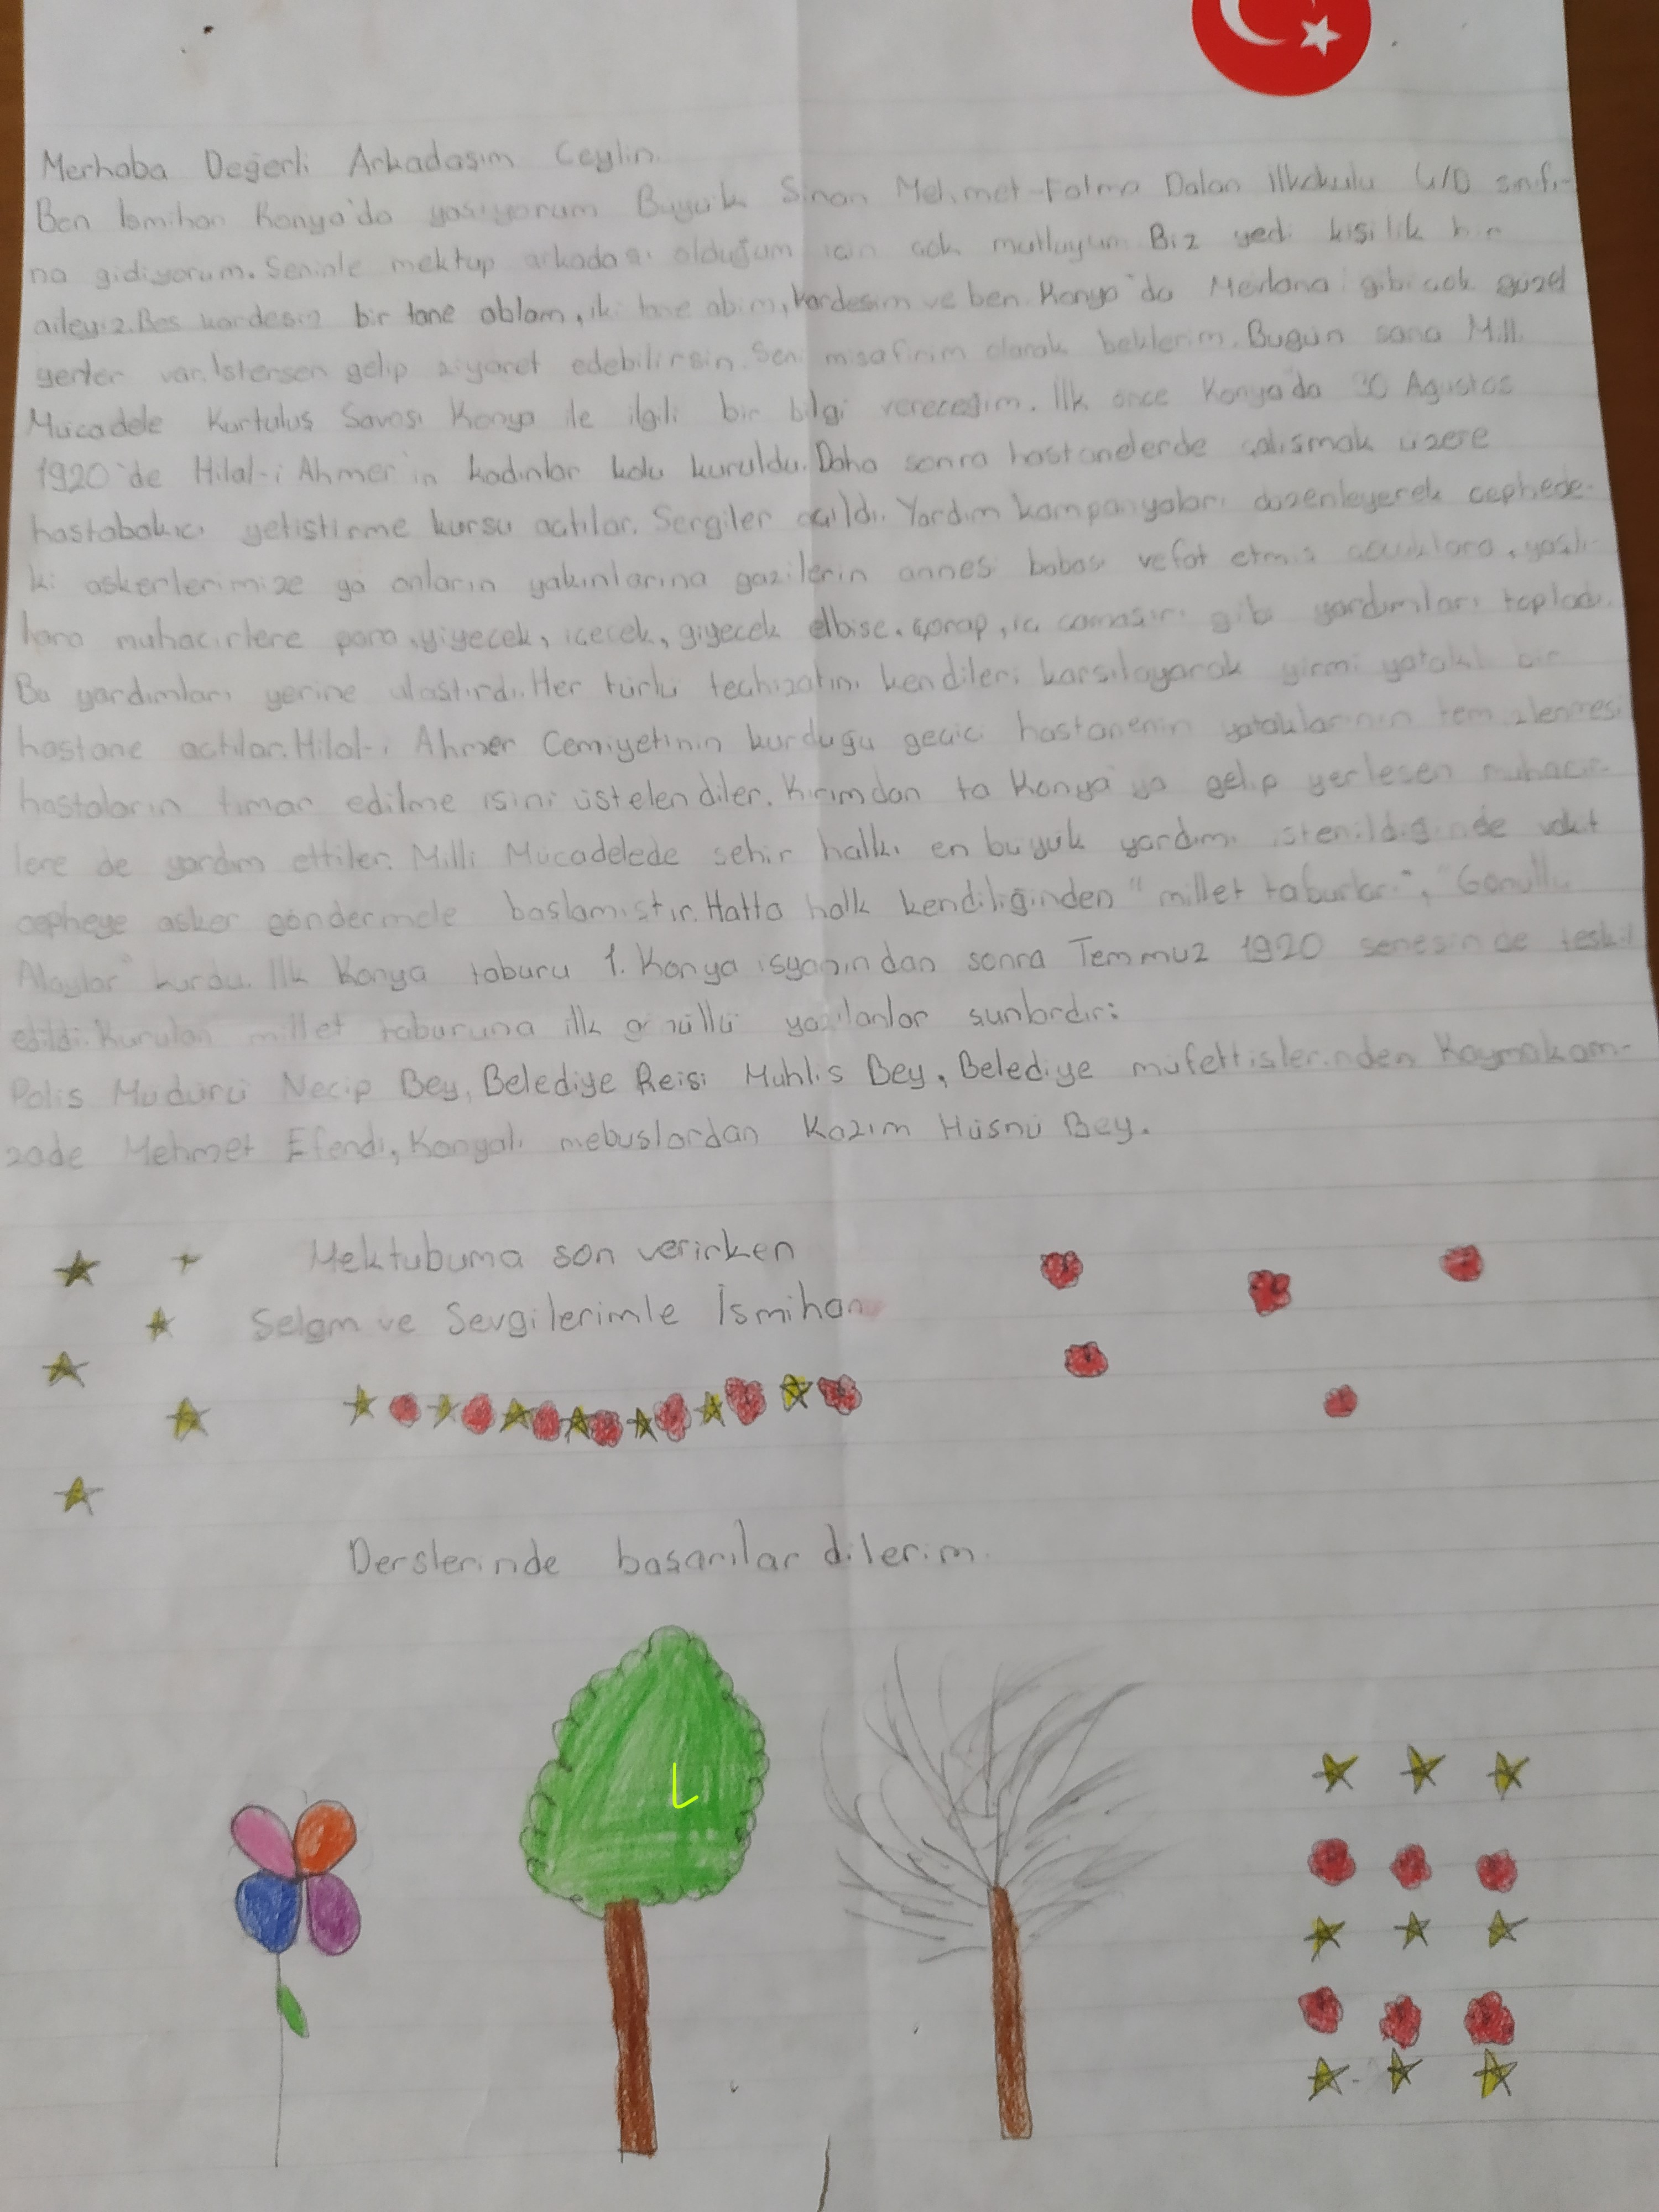 Merhaba Değerli Arkadaşım Ceylin.
Ben İsmihan Konya'da yaşıyorum Büyük Sinan Mehmet-Fatma Dalan İlkokulu 4/D sınıfı-
na gidiyorum. Seninle mektup arkadaşı olduğum için çok mutluyum. Biz yedi kişilik bir
aileyiz. Beş kardeşiz bir tane ablam, iki tane abim, kardeşim ve ben. Konya'da Mevlana gibi çok güzel
yerler var. İstersen gelip ziyaret edebilirsin. Seni misafirim olarak beklerim. Bugün sana Milli
Mücadele Kurtuluş Savaşı Konya ile ilgili bir bilgi vereceğim. İlk önce Konyada 30 Ağustos
1920'de Hilal-i Ahmer'in kadınlar kolu kuruldu. Daha sonra hastanelerde çalışmak üzere
hastabakıcı yetiştirme kursu açtılar. Sergiler açıldı. Yardım kampanyaları düzenleyerek cephede-
ki askerlerimize ya onların yakınlarına gazilerin annesi babası vefat etmiş çocuklara, yaşlı-
lara muhacirlere para, yiyecek, içecek, giyecek elbise, çorap, iç çamaşırı gibi yardımları topladı.
Bu yardımları yerine ulaştırdı. Her türlü teçhizatını kendileri karşılayarak yirmi yataklı bir
hastane açtılar. Hilal-i Ahmer Cemiyetinin kurduğu geçici hastanenin yataklarının temizlenmesi
hastaların tımar edilme işini üstelendiler. Kırımdan ta Konya'ya gelip yerleşen muhacir-
lere de yardım ettiler. Milli Mücadelede şehir halkı en büyük yardımı istenildiğinde vakit
cepheye asker göndermele başlamıştır. Hatta halk kendiliğinden "millet taburları", "Gönüllü
Alaylar" kurdu. İlk Konya taburu 1. Konya isyanından sonra Temmuz 1920 senesinde teşkil
edildi. Kurulan millet taburuna ilk gönüllü yazılanlar şunlardır:
Polis Müdürü Necip Bey, Belediye Reisi Muhlis Bey, Belediye müfettişlerinden Kaymakam-
zade Mehmet Efendi, Konyalı mebuslardan Kazım Hüsnü Bey.
Mektubuma son verirken
Selam ve Sevgilerimle İsmihan
Derslerinde başarılar dilerim.